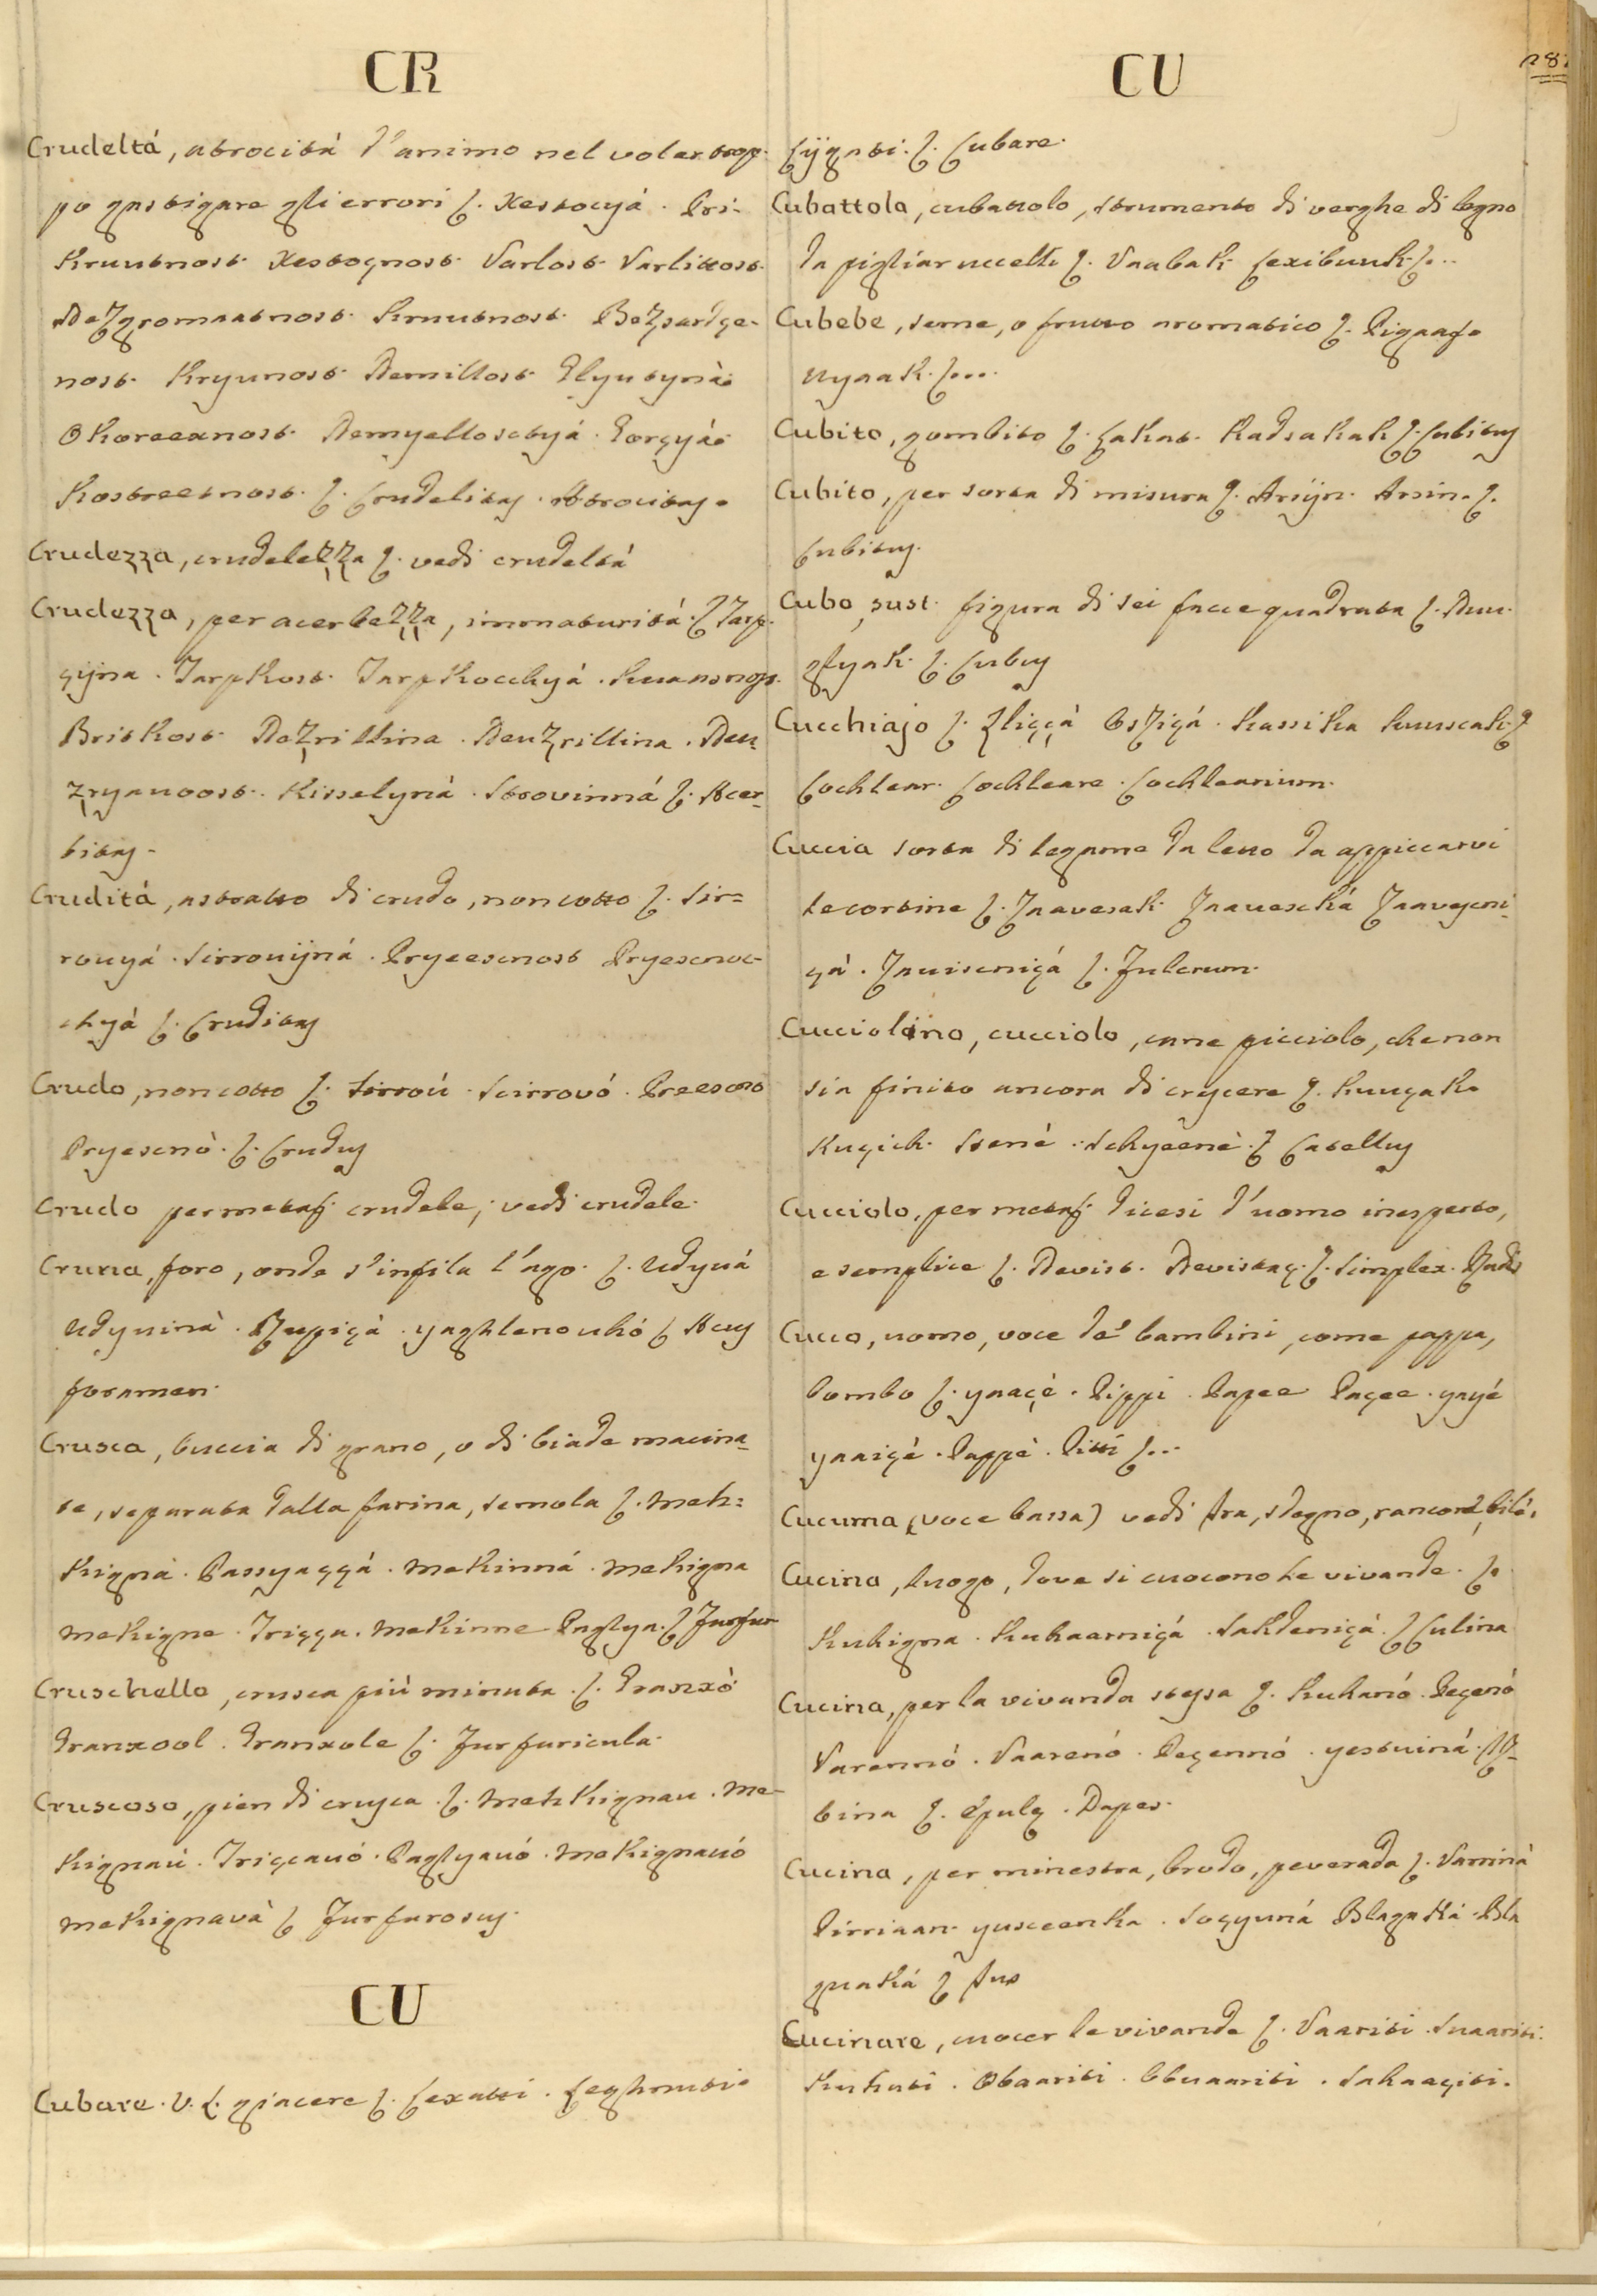 CR
Crudeltá, atrocitá d'animo nel voler trop-
po gastigare gli errori S. Xestocyá. Pri-
Kruutnost. Xestognost. Varlost. Varlittost.
Nezgromaatnost. Kruutnost. Bezsardçe-
nost. Kryunost. Nemillost. Glyutynà.
Okoreexnost. Nemyellosctyá. Gorçyá.
Kostreetnost. L. Crudelitas. Atrocitas.
Crudezza, crudelezza S. vedi crudeltá
Crudezza, per acerbezza, immaturitá. S. Tarp-
çijna. Tarpkost. Tarpkocchyá.
Britkost. Nezrillina. Neuzrillina. Neu-
zryanoost. Kisselynà. Strovinná L. Acer-
bitas.
Cruditá, astratto di crudo, non cotto S. Sir=
rouyá. Sirrouijná. Pryeescnost Pryescnoc-
chyá L. Cruditas
Crudo, non cotto S. Sirroú. Scirrovó. Preescnó
Pryescnò. L. Crudus
Crudo per metaf. crudele, vedi crudele.
Cruna, foro, onde s'infila l'ago. S. Udyuá
Udyuinà. Rupiçà. yaghlenoukó L Acus
foramen.
Crusca, buccia di grano, o di biade macina-
te, separata dalla farina, semola S. Meh=
kigná. Passyaççá. Mekinná. Mekigna
Mekigne. Triçça. Mekinne Paglya. L Furfur
Cruschello, crusca più minuta. S. Tranxò
Tranxool. Tranxole L. Furfuricula.
Cruscoso, pien di crusca. S. Mehkignau. Me-
kignaú. Triççauó. Paglyauó. Mekignauó
Mekignavà L Furfurosus.
CU
Cubare. V. L. giacere S. Lexatti. Leghnuti.
CU
Lijgati. L. Cubare.
Cubattola, cubattolo, strumento di verghe di legno
da pigliar uccelli S. Vaabak Lexibuuk. L...
Cubebe, seme, o frutto aromatico S. Pigaaf.
uyaak. L...
Cubito, gombito S. Lakat. Radsakak L. Cubitus
Cubito, per sorta di misura S. Arsijn. Arsin. L.
Cubitus.
Cubo, sust. figura di sei facce quadrata S. Nuu-
glyak. L. Cubus
Cucchiajo S. Xliççà Osziçá. Kassika Kuuscak. L
Cochlear. Cochleare. Cochlearium.
Cuccia sorta di legname da letto da appiccarvi
le cortine S. Zaavesak. Zaavesckà Zaavescni-
çà. Zauiscniçá L. Fulcrum.
Cucciolino, cucciolo, cane picciolo, che non
sia finito ancora di crescere S. Kuuçak.
Kuçich. Stené. Schyeenè. L Catellus
Cucciolo, per metaf. dicesi d'uomo inesperto,
e semplice S. Nevist. Nevistaç. L. Simplex. Rudis
Cucco, uomo, voce de' bambini, come pappa,
bombo S. yaaçè. Pippi. Papee Paçee. yayé
yaaiçé. Pappè. Pitti L...
Cucuma (voce bassa) vedi Ira, sdegno, rancore, bile.
Cucina, luogo, dove si cuocono le vivande. S.
Kuhigna. Kuhaarniçá. Sakdeniçá. L Culina
Cucina, per la vivanda stessa S. Kuhanó. Peçenó
Varennó. Vaarenó. Peçennó. yestuiná.
bina L. Epulę. Dapes.
Cucina, per minestra, brodo, peverada S. Varrinà
Pirriaan. yusceenka. Soçyuná Blagutká. Bla
guatká L Jus
Cucinare, cuocer le vivande S. Vaariti. Suaariti.
Kuhati. Obaariti. Obuaariti. Sakaaçiti.